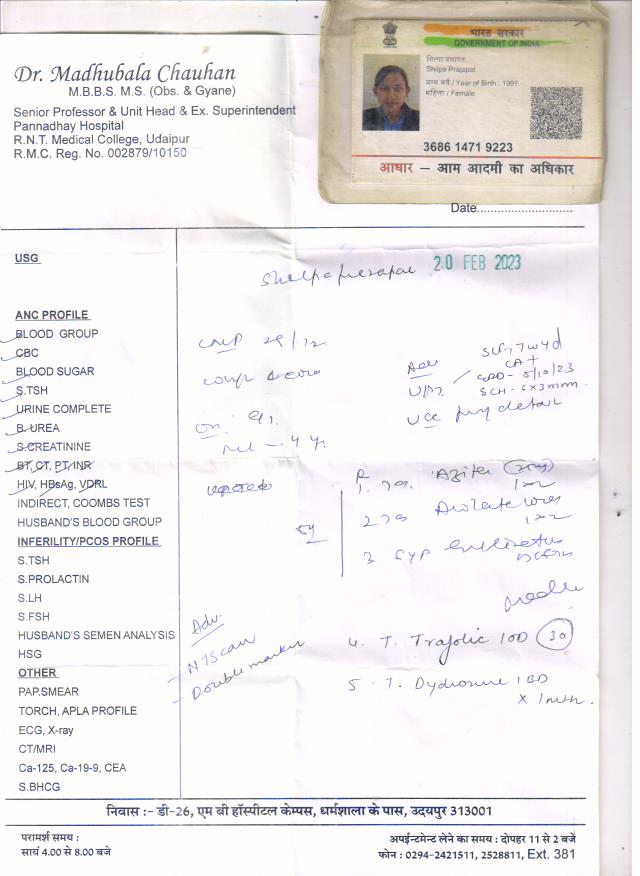 Dr. Madhubala Chauhan
M.B.B.S. M.S. (Obs. & Gyane)
Senior Professor & Unit Head & Ex. Superintendent
Pannadhay Hospital
R.N.T. Medical College, Udaipur
R.M.C. Reg. No. 002879/10150
भारत सरकार
GOVERNMENT OF INDIA
Shilpa Prajapat
जन्म वर्ष / Year of Birth : 1997
महिला / Female
3686 1471 9223
आधार – आम आदमी का अधिकार
Date............................
USG
20 FEB 2023
ANC PROFILE
BLOOD GROUP
CBC
BLOOD SUGAR
S.TSH
URINE COMPLETE
B. UREA
S.CREATININE
BT, CT, PT, INR
HIV, HBsAg, VDRL
INDIRECT, COOMBS TEST
HUSBAND'S BLOOD GROUP
INFERILITY/PCOS PROFILE
S.TSH
S.PROLACTIN
S.LH
S.FSH
HUSBAND'S SEMEN ANALYSIS
HSG
OTHER
PAP.SMEAR
TORCH, APLA PROFILE
ECG, X-ray
CT/MRI
Ca-125, Ca-19-9, CEA
S.BHCG
LMP 29/12
CA +
EDD - 5/10/23
SCH - 6x3mm
Adv.
- NT Scan
- Double marker
4. T. Trafolic 1OD 30
5. T. Dydrosure 1BD
x 1mth.
निवास :- डी-26, एम बी हॉस्पीटल केम्पस, धर्मशाला के पास, उदयपुर 313001
परामर्श समय :
सायं 4.00 से 8.00 बजे
अपॉईन्टमेन्ट लेने का समय : दोपहर 11 से 2 बजे
फोन : 0294-2421511, 2528811, Ext. 381